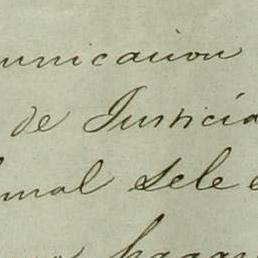 unicacion
de Justicia
unal sele e